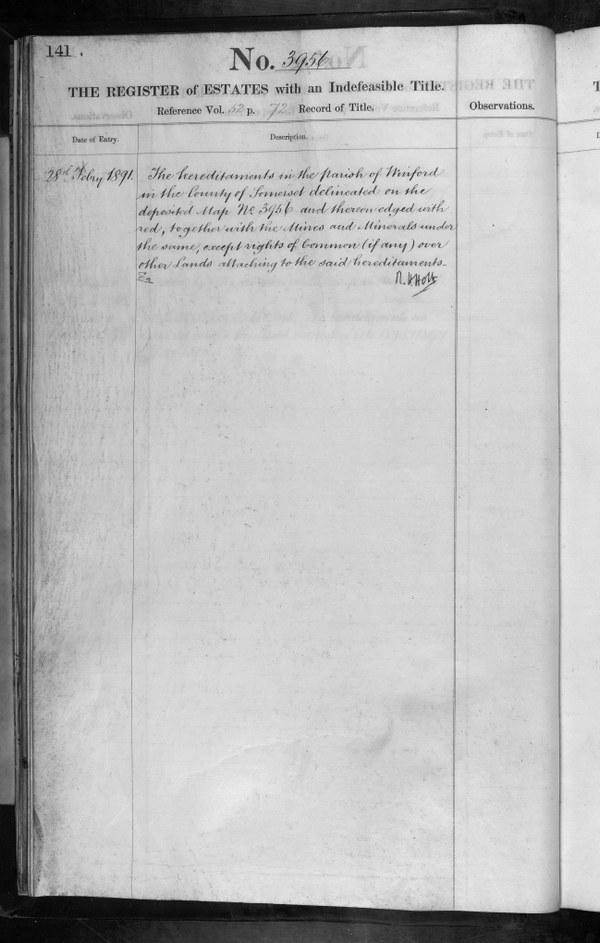 141.
No. 3956
THE REGISTER of ESTATES with an Indefeasible Title.
Reference Vol. 52 p. 72 Record of Title.
Observations.
Date of Entry.
Description.
28th Febry 1891.
The hereditaments in the Parish of Winford
in the County of Somerset delineated on the
deposited Map No 3956 and thereon edged with
red, together with the Mines and Minerals under
the same, except rights of Common (if any) over
other Lands attaching to the said hereditaments.
R. Holt